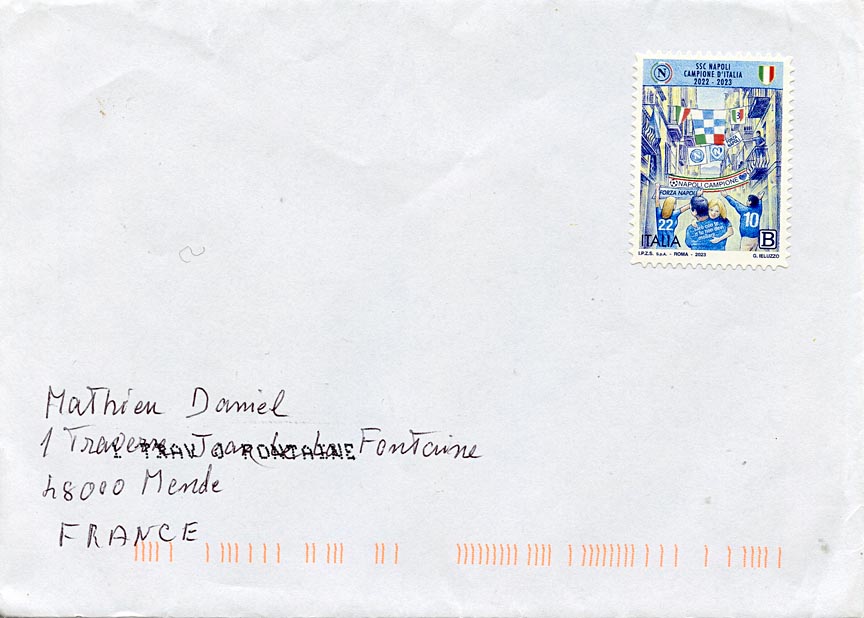 SSC NAPOLI
CAMPIONE D'ITALIA
2022 - 2023
N
NAPOLI CAMPIONE
FORZA NAPOLI
22
10
ITALIA
B
I.P.Z.S. S.p.A. - ROMA - 2023
G. IELUZZO
Mathieu Daniel
1 Traverse Jean de la Fontaine
1 TRAV J FONTAINE
48000 Mende
FRANCE